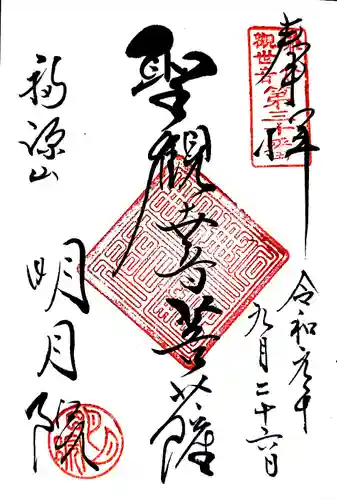 奉拝
觀世音
第三十
令和元年
九月二十六日
聖觀世音菩薩
福源山
明月院